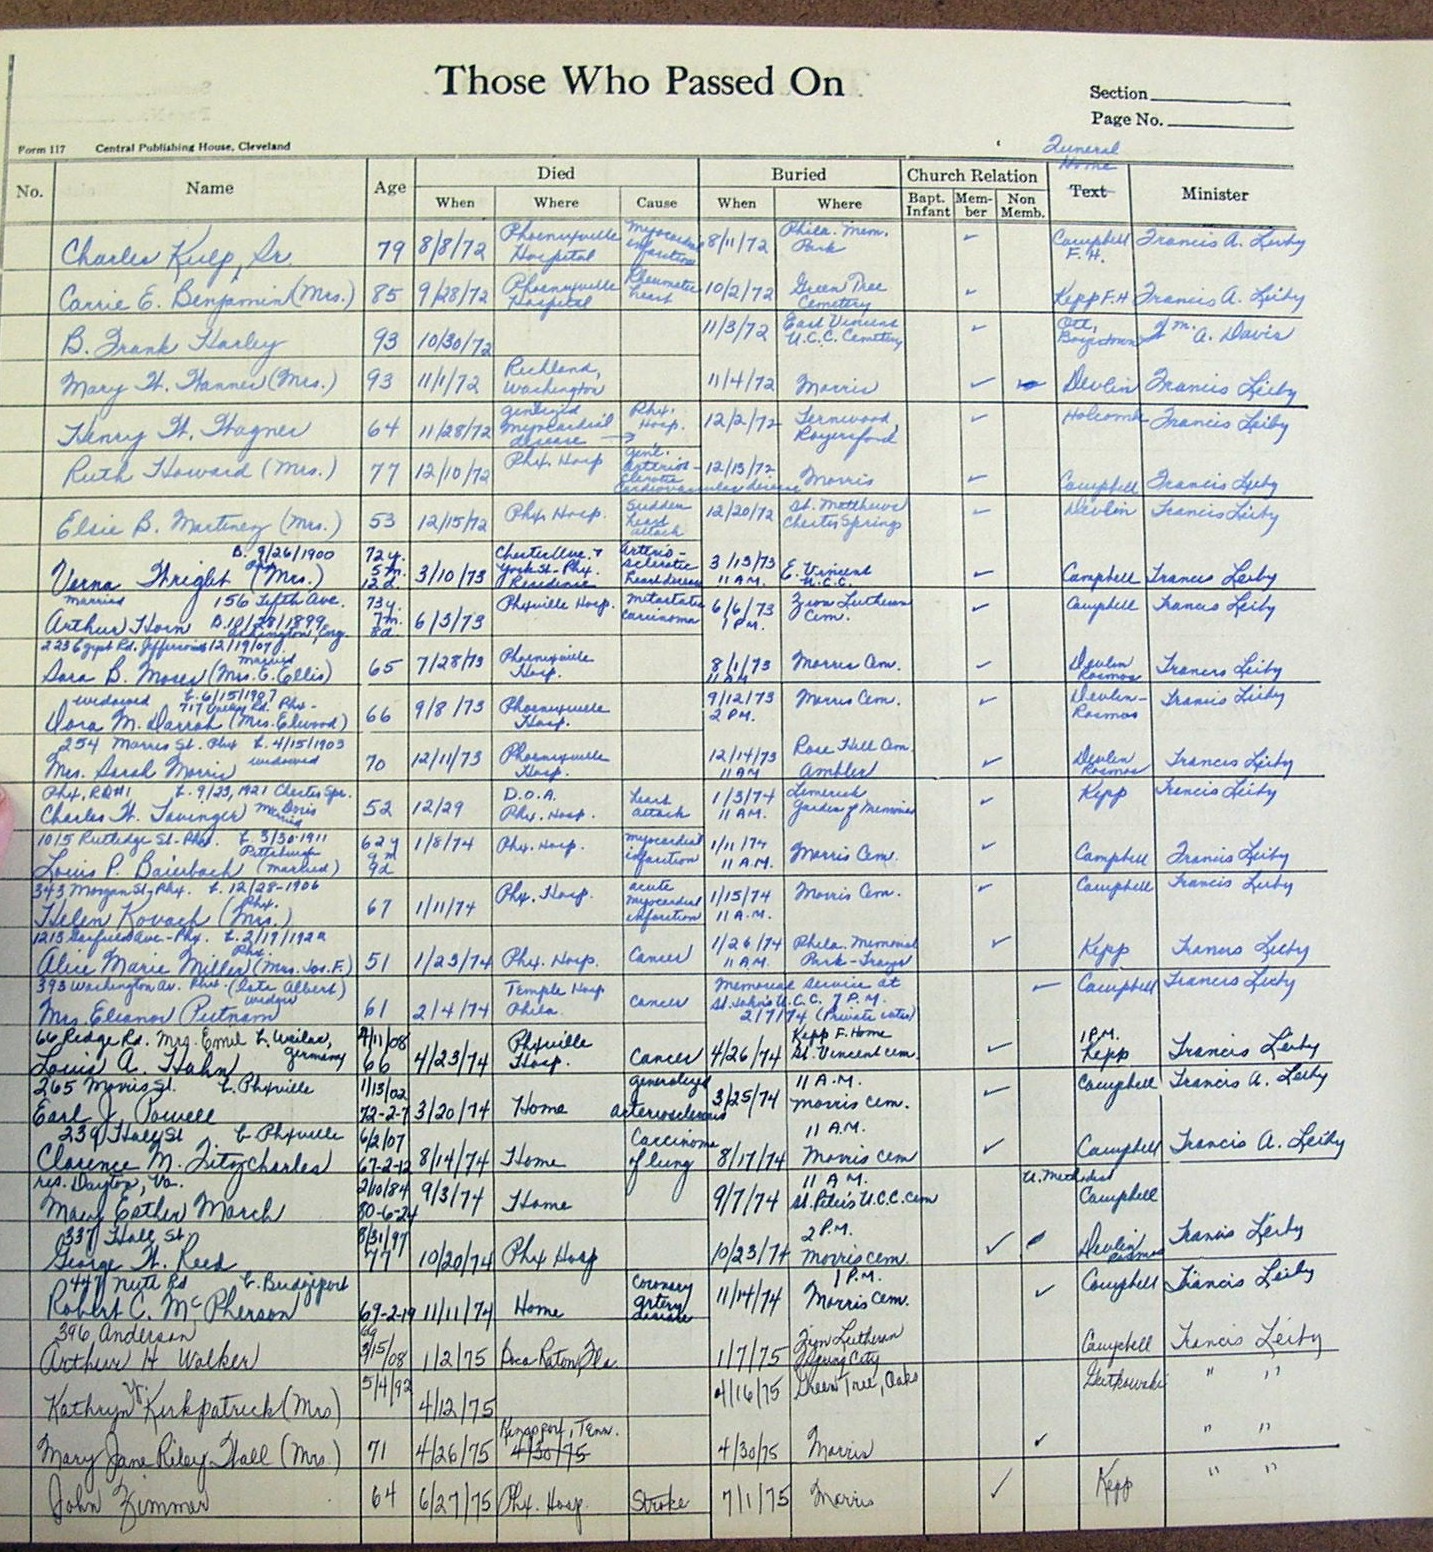 Those Who Passed On
Section
Page No.
Form 117 Central Publishing House, Cleveland
Funeral Home
No. Name Age Died Buried Church Relation Text Minister
When Where Cause When Where Bapt. Infant Mem-ber Non Memb.
Charles Kulp, Sr. 79 8/8/72 Phoenixville Hospital myocardial infarction 8/11/72 Phila. Mem. Park ✓ Campbell F. H. Francis A. Leiby
Carrie E. Benjamin (Mrs.) 85 9/28/72 Phoenixville Hospital Rheumatic heart 10/2/72 Green Tree Cemetery ✓ Kepp F.H Francis A. Leiby
B. Frank Harley 93 10/30/72 11/3/72 East Vincent U.C.C. Cemetery ✓ Ott, Boyertown Wm. A. Davis
Mary H. (Mrs.) 93 11/1/72 Richland, Washington 11/4/72 Morris ✓ Devlin Francis Leiby
Henry W. Wagner 64 11/28/72 myocardial disease → Phx. Hosp. 12/2/72 Fernwood, Royersford ✓ Holcombe Francis Leiby
Ruth Howard (Mrs.) 77 12/10/72 Phx Hosp genl. arterios-clerotic cardiovascular disease 12/13/72 Morris ✓ Campbell Francis Leiby
Elsie B. (Mrs.) 53 12/15/72 Phx. Hosp. Sudden heart attack 12/20/72 St. Matthews Chester Springs ✓ Devlin Francis Leiby
B. 9/26/1900
Verna Wright (Mrs.) 72 y. 5 m. 12 d. 3/10/73 Chester Ave. + York St - Phx. Residence arterio-sclerotic heart disease 3/13/73 11 A.M. E. Vincent U.C.C. ✓ Campbell Francis Leiby
married 156 Fifth Ave.
Arthur Horn B. 10/28/1899 Eng. 73 y. 7 m. 8 d. 6/5/73 Phxville Hosp. metastatic carcinoma 6/6/73 1 P.M. Zion Lutheran Cem. ✓ Campbell Francis Leiby
223 Egypt Rd. Jefferson 12/19/07
married
Sara B. Moses (Mrs. E. Ellis) 65 7/28/73 Phoenixville Hosp. 8/1/73 11 AM Morris Cem. ✓ Devlin Rosmos Francis Leiby
widowed b. 6/15/1907
717 Rd. Phx-
Dora M. Darrah (Mrs. Elwood) 66 9/8/73 Phoenixville Hosp. 9/12/73 2 PM. Morris Cem. ✓ Devlin-Rosmos Francis Leiby
254 Morris St. Phx b. 4/15/1903
Mrs. Sarah Morris widowed 70 12/11/73 Phoenixville Hosp. 12/14/73 11 AM Rose Hill Cem. Ambler ✓ Devlin Rosmos Francis Leiby
Phx, R.D#1 b. 9/23, 1921 Chester Spr.
Charles W. Mr. Doris 52 12/29 D.O.A. Phx. Hosp. heart attack 1/3/74 11 AM. Limerick Garden of Memories ✓ Kepp Francis Leiby
1015 Rutledge St-Phx. b. 3/30-1911
Pittsburgh
Louis P. Baierbach (married) 62 y 9 m 9 d 1/8/74 Phx. Hosp. myocardial infarction 1/11/74 11 A.M. Morris Cem. ✓ Campbell Francis Leiby
343 Morgan St, Phx. b. 12/28-1906
Phx.
Helen Kovach (Mrs.) 67 1/11/74 Phx. Hosp. acute myocardial infarction 1/15/74 11 A.M. Morris Cem. ✓ Campbell Francis Leiby
1213 Garfield Ave.-Phx. b. 2/19/1922
Phx.
Alice Marie Miller (Mrs. Jos. F.) 51 1/23/74 Phx. Hosp. Cancer 1/26/74 11 A.M. Phila. Memorial Park - ✓ Kepp Francis Leiby
393 Washington Av. Phx. (late Albert)
widow
Mrs. Eleanor Putnam 61 2/4/74 Temple Hosp Phila. cancer Memorial Service at St. John's U.C.C. 7 P.M. 2/7/74 ✓ Campbell Francis Leiby
66 Ridge Rd. Mrs. Emil b. Germany 4/11/08
Louis A. Hahn 66 4/23/74 Phxville Hosp. Cancer 4/26/74 Kepp F. Home St. Vincent cem. ✓ 1 P.M. Kepp Francis Leiby
265 Morris St. b. Phxville 1/13/02
Earl J. Powell 72-2-7 3/20/74 Home generalized arteriosclerosis 3/25/74 11 A.M. Morris cem. ✓ Campbell Francis A. Leiby
239 Hall St b. Phxville 6/2/07
Clarence M. Fitzcharles 67-2-12 8/14/74 Home Carcinoma of lung 8/17/74 11 A.M. Morris cem ✓ Campbell Francis A. Leiby
res. Dayton, Va. 2/10/84
Mary Esther March 80-6-24 9/3/74 Home 9/7/74 11 A M. St. Peter's U.C.C. cem U. Methodist Campbell
337 Hall St. 8/31/97
George W. Reed 77 10/20/74 Phx Hosp 10/23/74 2 P.M. Morris cem. ✓ Devlin Rosmos Francis Leiby
447 Nutt Rd b. Bridgeport
Robert C. McPherson 69-2-19 11/11/74 Home Coronary artery disease 11/14/74 1 P.M. Morris Cem. ✓ Campbell Francis Leiby
396 Anderson
Arthur H Walker 3/15/08 1/2/75 Boca Raton, Fla. 1/7/75 Zion Lutheran Spring City Campbell Francis Leiby
Kathryn Kirkpatrick (Mrs) 5/4/92 4/12/75 4/16/75 Green Tree, Oaks Gutkowski " "
Mary Jane Riley Hall (Mrs.) 71 4/26/75 Kingsport, Tenn. 4/30/75 4/30/75 Morris ✓ " "
John Zimmer 64 6/27/75 Phx. Hosp. Stroke 7/1/75 Morris ✓ Kepp " "